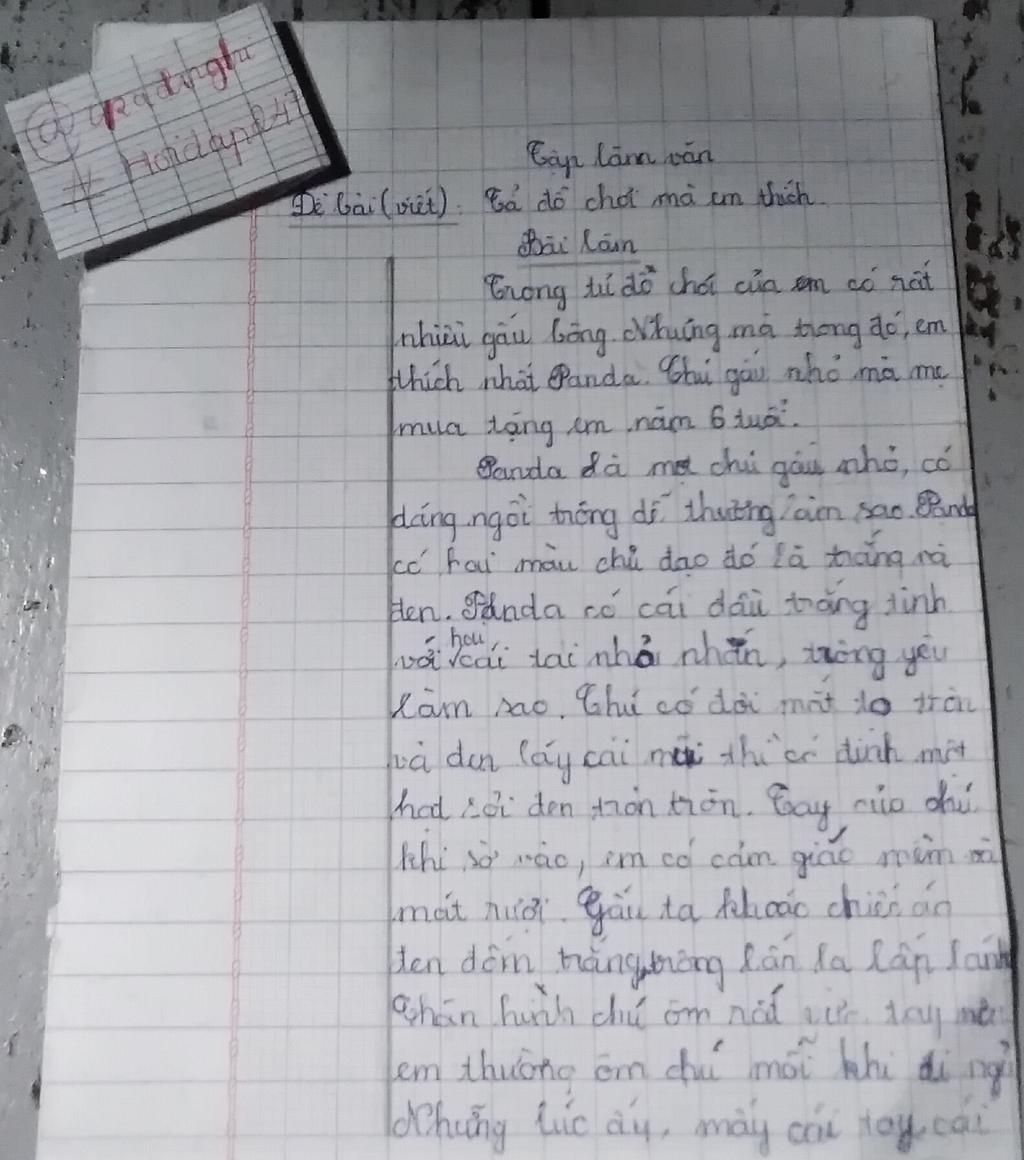 # Hoidap247
Tập làm văn
Đề bài (viết): Tả đồ chơi mà em thích.
Bài làm
Trong tủ đồ chơi của em có rất
nhiều gấu bông. Nhưng mà trong đó, em
thích nhất Panda. Chú gấu nhỏ mà mẹ
mua tặng em năm 6 tuổi.
Panda là một chú gấu nhỏ, có
dáng ngồi trông dễ thương làm sao. Panda
có hai màu chủ đạo đó là trắng và
đen. Panda có cái đầu trắng tinh
với hai cái tai nhỏ nhắn, trông yêu
làm sao. Chú có đôi mắt to tròn
và đen láy cái mũi thì có đính một
hạt sỏi đen tròn tròn. Tay của chú
khi sờ vào, em có cảm giác mềm và
mát rượi. Gấu ta khoác chiếc áo
đen đốm trắng, trông lấp la lấp lánh
Thân hình chú ôm rất vừa tay nên
em thường ôm chú mỗi khi đi ngủ
Những lúc ấy, mấy cái tay, cái